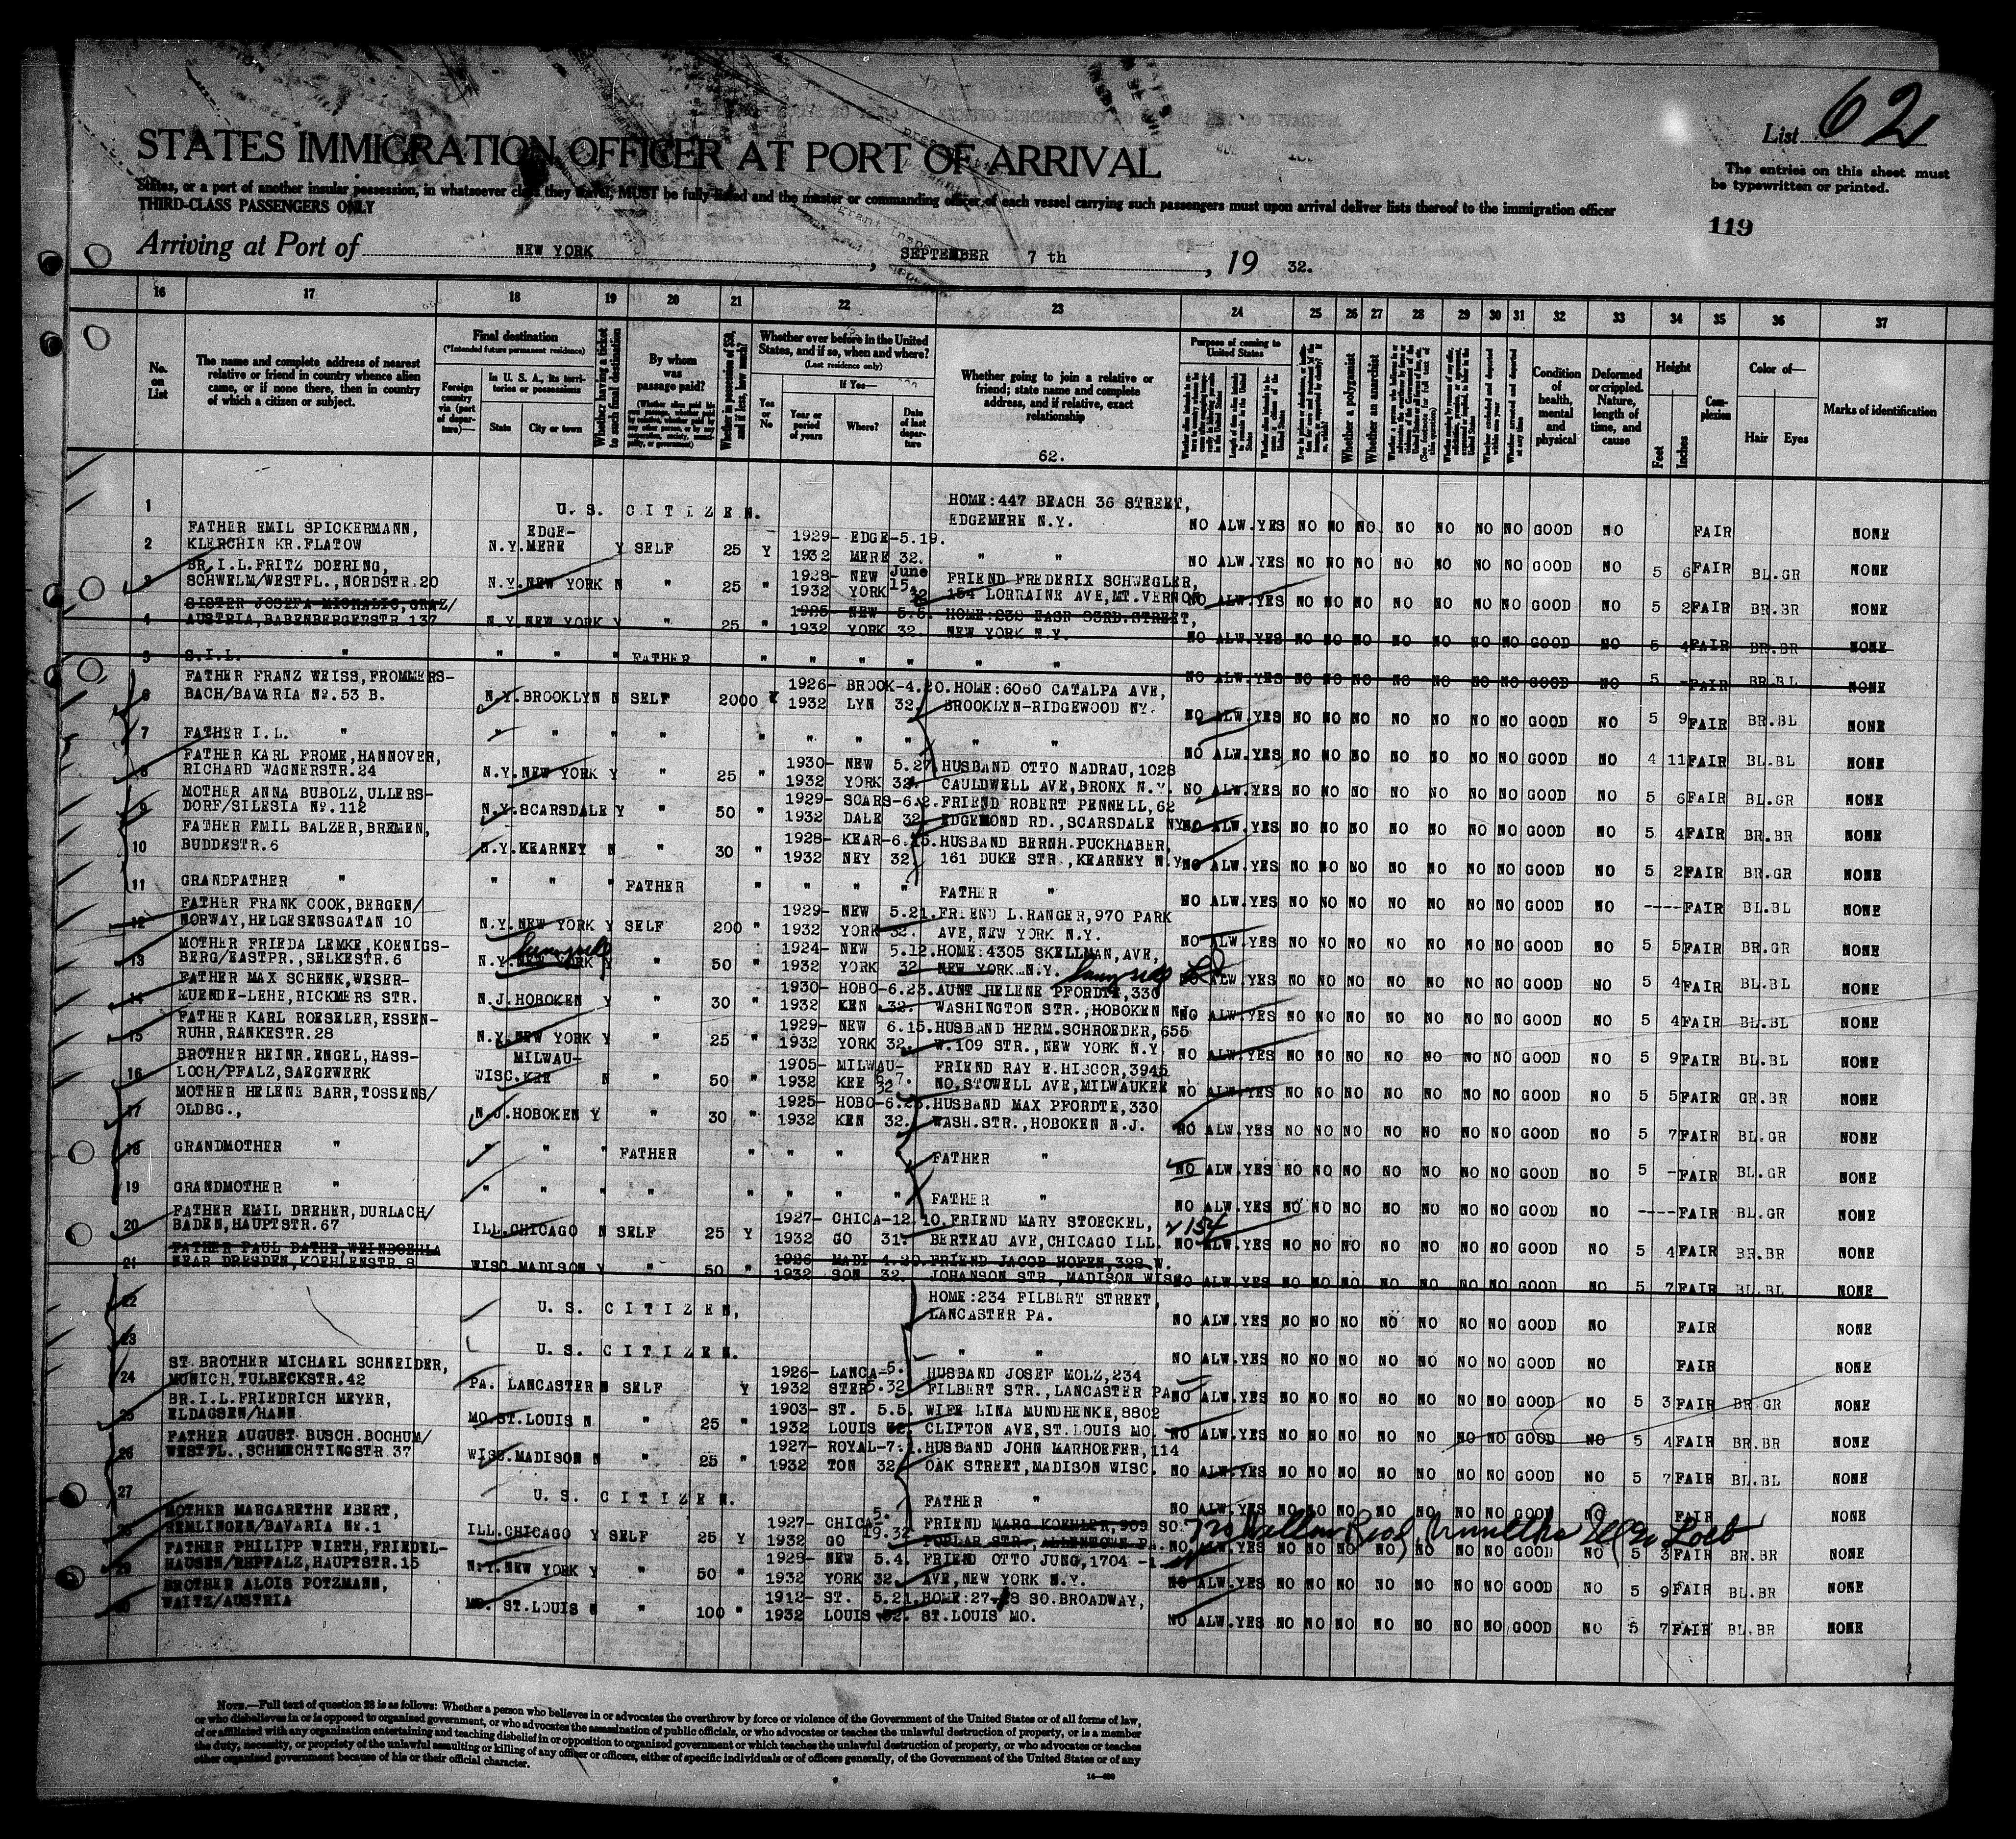 List 62
STATES IMMIGRATION OFFICER AT PORT OF ARRIVAL
The entries on this sheet must
be typewritten or printed.
States, or a port of another insular possession, in whatsoever class they travel, MUST be fully listed and the master or commanding officer of each vessel carrying such passengers must upon arrival deliver lists thereof to the immigration officer
THIRD-CLASS PASSENGERS ONLY
119
Arriving at Port of NEW YORK, SEPTEMBER 7 th, 19 32.
16 17 18 19 20 21 22 23 24 25 26 27 28 29 30 31 32 33 34 35 36 37
No. on List
The name and complete address of nearest
relative or friend in country whence alien
came, or if none there, then in country
of which a citizen or subject.
Final destination
(*Intended future permanent residence)
Foreign country via (port of departure)—
In U. S. A., its territories or possessions
State City or town
Whether having a ticket to such final destination
By whom was passage paid?
Whether in possession of $50, and if less, how much?
Whether ever before in the United
States, and if so, when and where?
(Last residence only)
Yes or No
If Yes—
Year or period of years
Where?
Date of last departure
Whether going to join a relative or
friend; state name and complete
address, and if relative, exact
relationship
62.
Purpose of coming to United States
Whether a polygamist
Whether an anarchist
Condition of health, mental and physical
Deformed or crippled. Nature, length of time, and cause
Height
Feet Inches
Complexion
Color of—
Hair Eyes
Marks of identification
1 U. S. C I T I Z E N. HOME:447 BEACH 36 STREET,
EDGEMERE N.Y. NO ALW.YES NO NO NO NO NO NO NO GOOD NO FAIR NONE
2 FATHER EMIL SPICKERMANN, EDGE- 1929- EDGE-5.19.
KLERCHIN KR.FLATOW N.Y.MERE Y SELF 25 Y 1932 MERE 32. " " NO ALW.YES NO NO NO NO NO NO NO GOOD NO 5 6 FAIR BL.GR NONE
3 BR.I.L.FRITZ DOERING, 1928- NEW June FRIEND FREDERIX SCHWEGLER,
SCHWELM/WESTFL.,NORDSTR.20 N.Y.NEW YORK N " 25 " 1932 YORK 15. 32 154 LORRAINE AVE,MT.VERNON NO ALW.YES NO NO NO NO NO NO NO GOOD NO 5 2 FAIR BR.BR NONE
4 SISTER JOSEFA MICHALIC,GRAZ/ 1925- NEW 5.5. HOME:239 EASR 93RD.STREET,
AUSTRIA,BABENBERGERSTR.137 N.Y.NEW YORK Y " 25 " 1932 YORK 32. NEW YORK N.Y. NO ALW.YES NO NO NO NO NO NO NO GOOD NO 5 4 FAIR BR.BR NONE
5 S.I.L. " " " " FATHER " " " " " " NO ALW.YES NO NO NO NO NO NO NO GOOD NO 5 - FAIR BR.BL NONE
6 FATHER FRANZ WEISS,FROMMERS- 1926- BROOK-4.20. HOME:6060 CATALPA AVE,
BACH/BAVARIA No.53 B. N.Y.BROOKLYN N SELF 2000 Y 1932 LYN 32. BROOKLYN-RIDGEWOOD NY. NO ALW.YES NO NO NO NO NO NO NO GOOD NO 5 9 FAIR BR.BL NONE
7 FATHER I.L. " " " " " " " " " " " NO ALW.YES NO NO NO NO NO NO NO GOOD NO 4 11 FAIR BL.BL NONE
8 FATHER KARL FROME,HANNOVER, 1930- NEW 5.27. HUSBAND OTTO NADRAU,1028
RICHARD WAGNERSTR.24 N.Y.NEW YORK Y " 25 " 1932 YORK 32. CAULDWELL AVE,BRONX N.Y. NO ALW.YES NO NO NO NO NO NO NO GOOD NO 5 6 FAIR BL.GR NONE
9 MOTHER ANNA BUBOLZ,ULLERS- 1929- SCARS-6.2. FRIEND ROBERT PENNELL,62
DORF/SILESIA No.112 N.Y.SCARSDALE Y " 50 " 1932 DALE 32. EDGEMOND RD.,SCARSDALE NY. NO ALW.YES NO NO NO NO NO NO NO GOOD NO 5 4 FAIR BR.BR NONE
10 FATHER EMIL BALZER,BREMEN, 1928- KEAR-6.15. HUSBAND BERNH.PUCKHABER,
BUDDESTR.6 N.Y.KEARNEY N " 30 " 1932 NEY 32. 161 DUKE STR.,KEARNEY N.Y. NO ALW.YES NO NO NO NO NO NO NO GOOD NO 5 2 FAIR BR.GR NONE
11 GRANDFATHER " " " " FATHER " " " " FATHER " NO ALW.YES NO NO NO NO NO NO NO GOOD NO ---- FAIR BL.BL NONE
12 FATHER FRANK COOK,BERGEN/ 1929- NEW 5.21. FRIEND L.RANGER,970 PARK
NORWAY,HELGESENSGATAN 10 N.Y.NEW YORK Y SELF 200 " 1932 YORK 32. AVE,NEW YORK N.Y. NO ALW.YES NO NO NO NO NO NO NO GOOD NO 5 5 FAIR BR.GR NONE
13 MOTHER FRIEDA LEMKE,KOENIGS- Sunnyside 1924- NEW 5.12. HOME:4305 SKELLMAN,AVE,
BERG/EASTPR.,SELKESTR.6 N.Y.NEW YORK Y " 50 " 1932 YORK 32 NEW YORK N.Y. Sunnyside NO ALW.YES NO NO NO NO NO NO NO GOOD NO 5 4 FAIR BL.BL NONE
14 FATHER MAX SCHENK,WESER- 1930- HOBO-6.23. AUNT HELENE PFORDTE,330
MUENDE-LEHE,RICKMERS STR. N.J.HOBOKEN Y " 30 " 1932 KEN 32. WASHINGTON STR.,HOBOKEN NJ. NO ALW.YES NO NO NO NO NO NO NO GOOD NO 5 4 FAIR BL.BL NONE
15 FATHER KARL ROESELER,ESSEN- 1929- NEW 6.15. HUSBAND HERM.SCHROEDER,655
RUHR,RANKESTR.28 N.Y.NEW YORK Y " 25 " 1932 YORK 32. W.109 STR.,NEW YORK N.Y. NO ALW.YES NO NO NO NO NO NO NO GOOD NO 5 9 FAIR BL.BL NONE
16 BROTHER HEINR.ENGEL,HASS- MILWAU- 1905- MILWAU- FRIEND RAY E.HISCOR,3945
LOCH/PFALZ,SAEGEWERK WISC.KEE N " 50 " 1932 KEE 6.7. 32 NO.STOWELL AVE,MILWAUKEE NO ALW.YES NO NO NO NO NO NO NO GOOD NO 5 5 FAIR GR.BR NONE
17 MOTHER HELENE BARR,TOSSENS/ 1925- HOBO-6.23. HUSBAND MAX PFORDTE,330
OLDBG., N.J.HOBOKEN Y " 30 " 1932 KEN 32. WASH.STR.,HOBOKEN N.J. NO ALW.YES NO NO NO NO NO NO NO GOOD NO 5 7 FAIR BL.GR NONE
18 GRANDMOTHER " " " " FATHER " " " FATHER " NO ALW.YES NO NO NO NO NO NO NO GOOD NO 5 - FAIR BL.GR NONE
19 GRANDMOTHER " " " " " " " " " FATHER " NO ALW.YES NO NO NO NO NO NO NO GOOD NO ---- FAIR BL.GR NONE
20 FATHER EMIL DREHER,DURLACH/ 1927- CHICA-12.10. FRIEND MARY STOECKEL, 2154
BADEN,HAUPTSTR.67 ILL.CHICAGO N SELF 25 Y 1932 GO 31. BERTEAU AVE,CHICAGO ILL. NO ALW.YES NO NO NO NO NO NO NO GOOD NO 5 4 FAIR BR.BR NONE
21 FATHER PAUL DATHE,WEINBOEHLA 1926 MADI-4.20. FRIEND JACOB HOFEN,328 W.
NEAR DRESDEN,KOEHLENSTR.8 WISC.MADISON Y " 50 " 1932 SON 32. JOHANSON STR.,MADISON WISC. NO ALW.YES NO NO NO NO NO NO NO GOOD NO 5 7 FAIR BL.BL NONE
22 U. S. C I T I Z E N, HOME:234 FILBERT STREET,
LANCASTER PA. NO ALW.YES NO NO NO NO NO NO NO GOOD NO FAIR NONE
23 U. S. C I T I Z E N. " " NO ALW.YES NO NO NO NO NO NO NO GOOD NO FAIR NONE
24 ST.BROTHER MICHAEL SCHNEIDER, 1926- LANCA-5. HUSBAND JOSEF MOLZ,234
MUNICH,TULBECKSTR.42 PA. LANCASTER N SELF Y 1932 STER 5.32 FILBERT STR.,LANCASTER PA. NO ALW.YES NO NO NO NO NO NO NO GOOD NO 5 3 FAIR BR GR NONE
25 BR.I.L.FRIEDRICH MEYER, 1903- ST. 5.5. WIFE LINA MUNDHENKE,8802
ELDAGSEN/HANN MO.ST.LOUIS N " 25 " 1932 LOUIS 32. CLIFTON AVE,ST.LOUIS MO. NO ALW.YES NO NO NO NO NO NO NO GOOD NO 5 4 FAIR BR.BR NONE
26 FATHER AUGUST BUSCH.BOCHUM/ 1927- ROYAL-7.1. HUSBAND JOHN MARHOEFER,114
WESTFL.,SCHMECHTINGSTR.37 WISC.MADISON N " 25 " 1932 TON 32. OAK STREET,MADISON WISC. NO ALW.YES NO NO NO NO NO NO NO GOOD NO 5 7 FAIR BL.BL NONE
27 U. S. C I T I Z E N. FATHER " NO ALW.YES NO NO NO NO NO NO NO GOOD NO FAIR NONE
28 MOTHER MARGARETHE EBERT, 1927- CHICA-5. FRIEND MARG.KOEHLER,909 SO. 720 Willow Road, Winnetka Ill
REMLINGEN/BAVARIA No.1 ILL.CHICAGO Y SELF 25 Y 1932 GO 19.32 POPLAR STR.,ALLENTOWN PA. NO ALW.YES NO NO NO NO NO NO NO GOOD NO 5 3 FAIR BR.BR NONE
29 FATHER PHILIPP WIRTH,FRIEDEL- 1928- NEW 5.4. FRIEND OTTO JUNG,1704 -1
HAUSEN/RHPFALZ,HAUPTSTR.15 N.Y.NEW YORK Y " 50 " 1932 YORK 32. AVE,NEW YORK N.Y. NO ALW.YES NO NO NO NO NO NO NO GOOD NO 5 9 FAIR BL.BR NONE
30 BROTHER ALOIS POTZMANN, 1912- ST. 5.21. HOME:27-28 SO.BROADWAY,
WAITZ/AUSTRIA MO. ST.LOUIS N " 100 " 1932 LOUIS 32. ST.LOUIS MO. NO ALW.YES NO NO NO NO NO NO NO GOOD NO 5 7 FAIR BL.BR NONE
NOTE.—Full text of question 28 is as follows: Whether a person who believes in or advocates the overthrow by force or violence of the Government of the United States or of all forms of law,
or who disbelieves in or is opposed to organized government, or who advocates the assassination of public officials, or who advocates or teaches the unlawful destruction of property, or is a member
of or affiliated with any organization entertaining and teaching disbelief in or opposition to organized government or which teaches the unlawful destruction of property, or who advocates or teaches
the duty, necessity, or propriety of the unlawful assaulting or killing of any officer or officers, either of specific individuals or of officers generally, of the Government of the United States or of any
other organized government because of his or their official character.